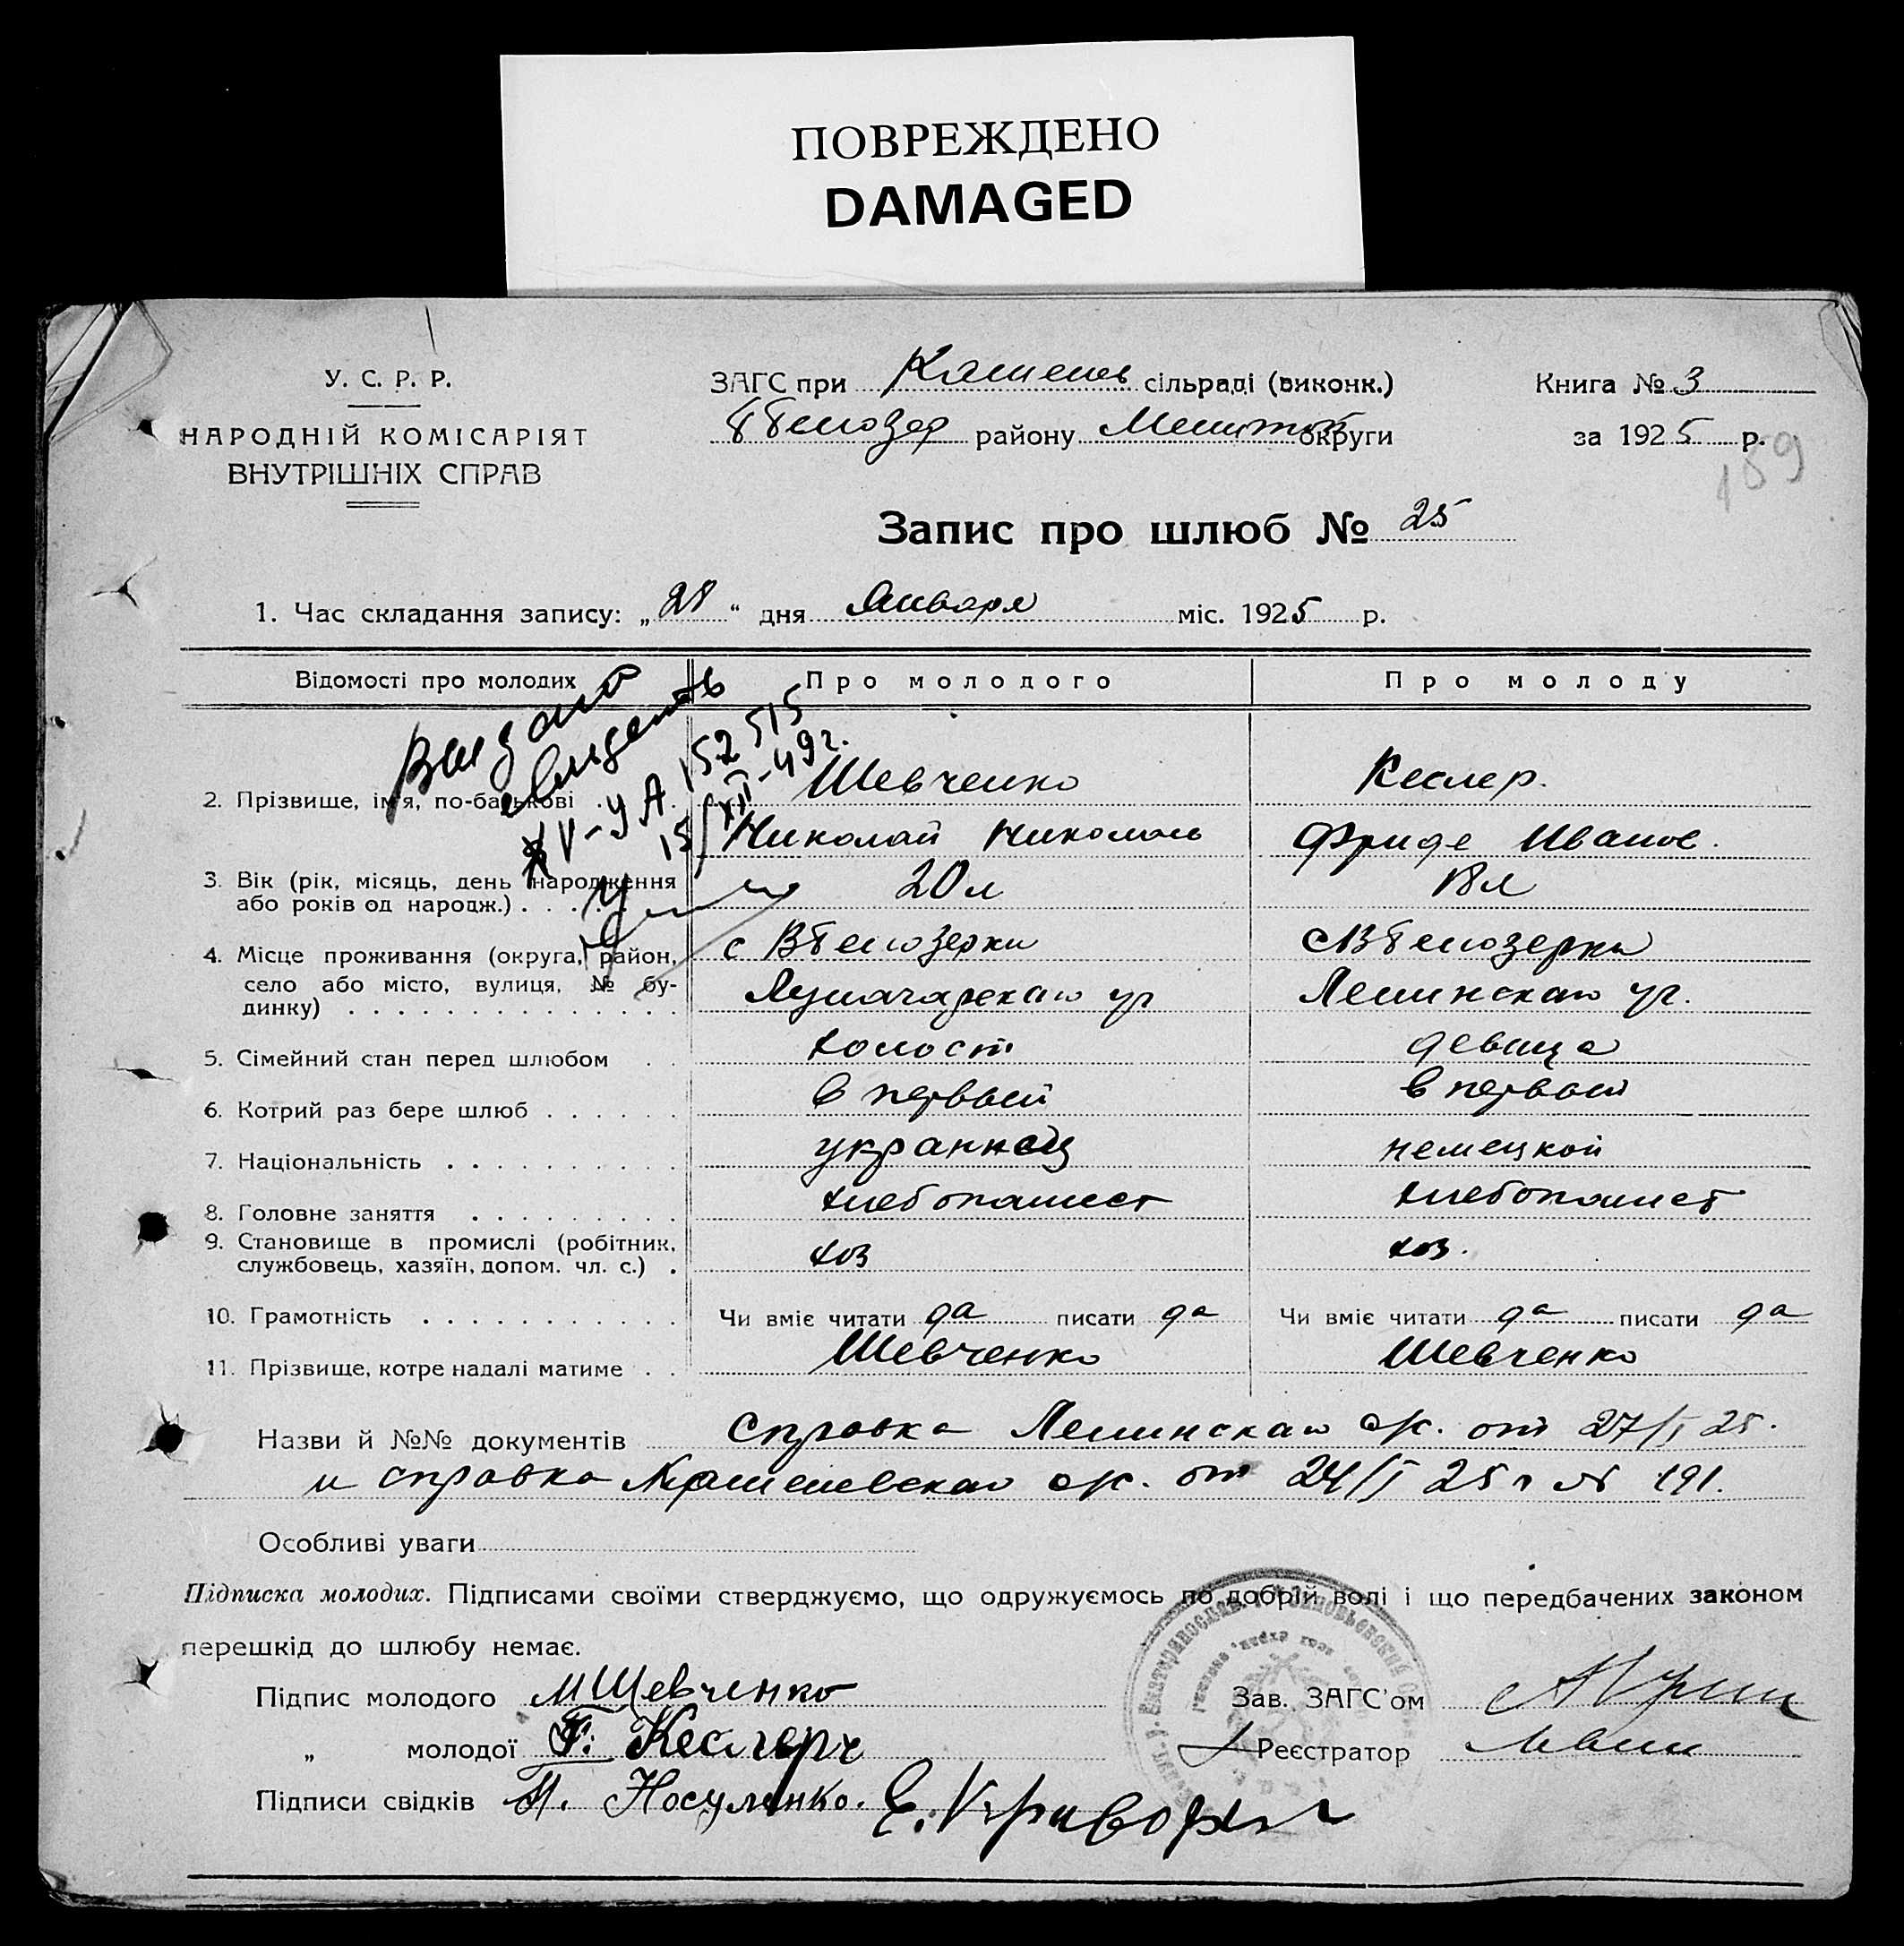 ПОВРЕЖДЕНО
DAMAGED
У. С. Р. Р.
НАРОДНІЙ КОМІСАРІЯТ
ВНУТРІШНІХ СПРАВ
ЗАГС при сільраді (виконк.)
району округи
Книга № 3
за 1925 р.
189
Запис про шлюб № 25
1. Час складання запису: „28“ дня Января міс. 1925 р.
Відомості про молодих
Про молодого
Про молоду
Выдано
свидетель
ХV-УА 152515
15/XII-49г.
2. Прізвище, ім'я, по-батькові . . .
Шевченко
Кеслер.
Николай Николаев
Фриде Иванов.
3. Вік (рік, місяць, день народження
або років од народж.) . . . . . .
20 л
18 л
4. Місце проживання (округа, район,
село або місто, вулиця, № бу-
динку) . . . . . . . . . . . . . .
с ВБелозерки
с ВБелозерки
Луначарская ул
Ленинская ул.
5. Сімейний стан перед шлюбом . .
холост
девица
6. Котрий раз бере шлюб . . . . . .
в первый
в первый
7. Національність . . . . . . . . . .
украинец
немецкой
8. Головне заняття . . . . . . . . .
хлебопашест
хлебопашест
9. Становище в промислі (робітник,
службовець, хазяїн, допом. чл. с.) .
хоз
хоз.
10. Грамотність . . . . . . . . . . .
Чи вміє читати да писати да
Чи вміє читати да писати да
11. Прізвище, котре надалі матиме . .
Шевченко
Шевченко
Назви й №№ документів Справка Ленинская от 27/I 25.
и справка от 24/I 25 г № 191.
Особливі уваги
Підписка молодих. Підписами своїми стверджуємо, що одружуємось по добрій волі і що передбачених законом
перешкід до шлюбу немає.
Підпис молодого Шевченко
„ молодої Кеслерч
Підписи свідків Носуленко.
Зав. ЗАГС'ом
Реєстратор